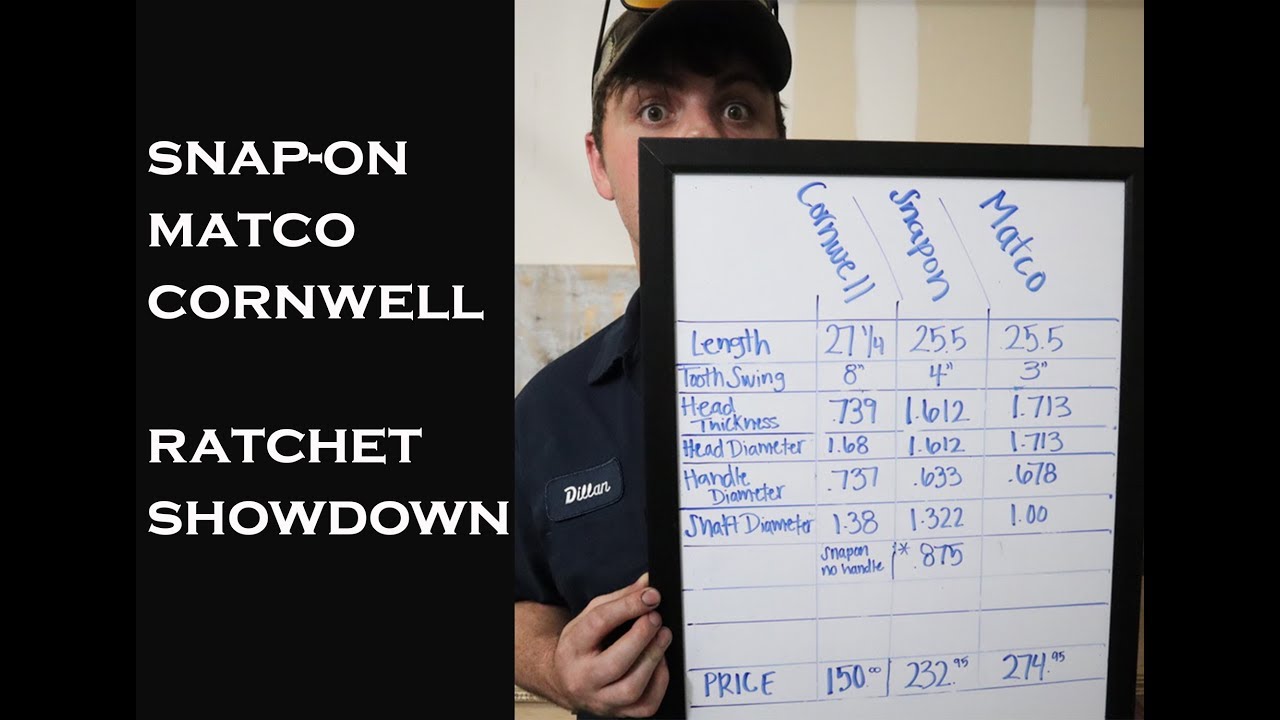 SNAP-ON
MATCO
CORNWELL
RATCHET
SHOWDOWN
Dillan
Cornwell Snapon Matco
Length 27 1/4 25.5 25.5
Tooth Swing 8" 4" 3"
Head Thickness .739 1.612 1.713
Head Diameter 1.68 1.612 1.713
Handle Diameter .737 .633 .678
Shaft Diameter 1.38 1.322 1.00
snapon no handle * .875
PRICE 150.00 232.95 274.95